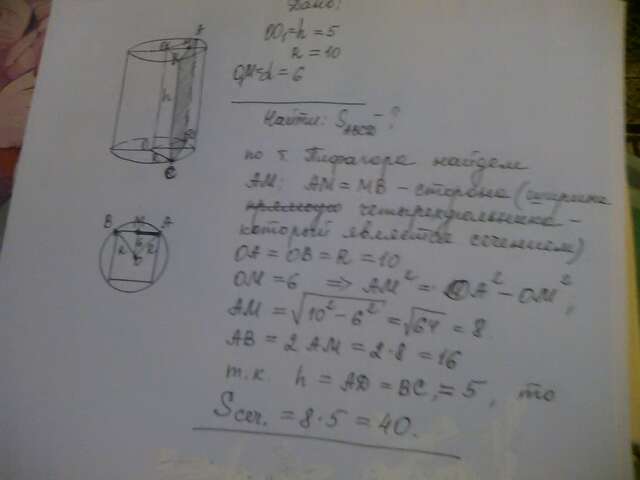 Дано:
OO₁=h=5
R=10
OM=d=6
Найти: S_ABCD - ?
по т. Пифагора найдем
AM: AM=MB - сторона (ширина
прямоуго четырехугольника -
который является сечением)
OA = OB = R = 10
OM = 6 => AM² = OA² - OM²;
AM = √10² - 6² = √64 = 8.
AB = 2 AM = 2·8 = 16
т.к. h = AD = BC, = 5, то
Sсеч. = 8·5 = 40.
A
h
C
B M A
R 6 R
O